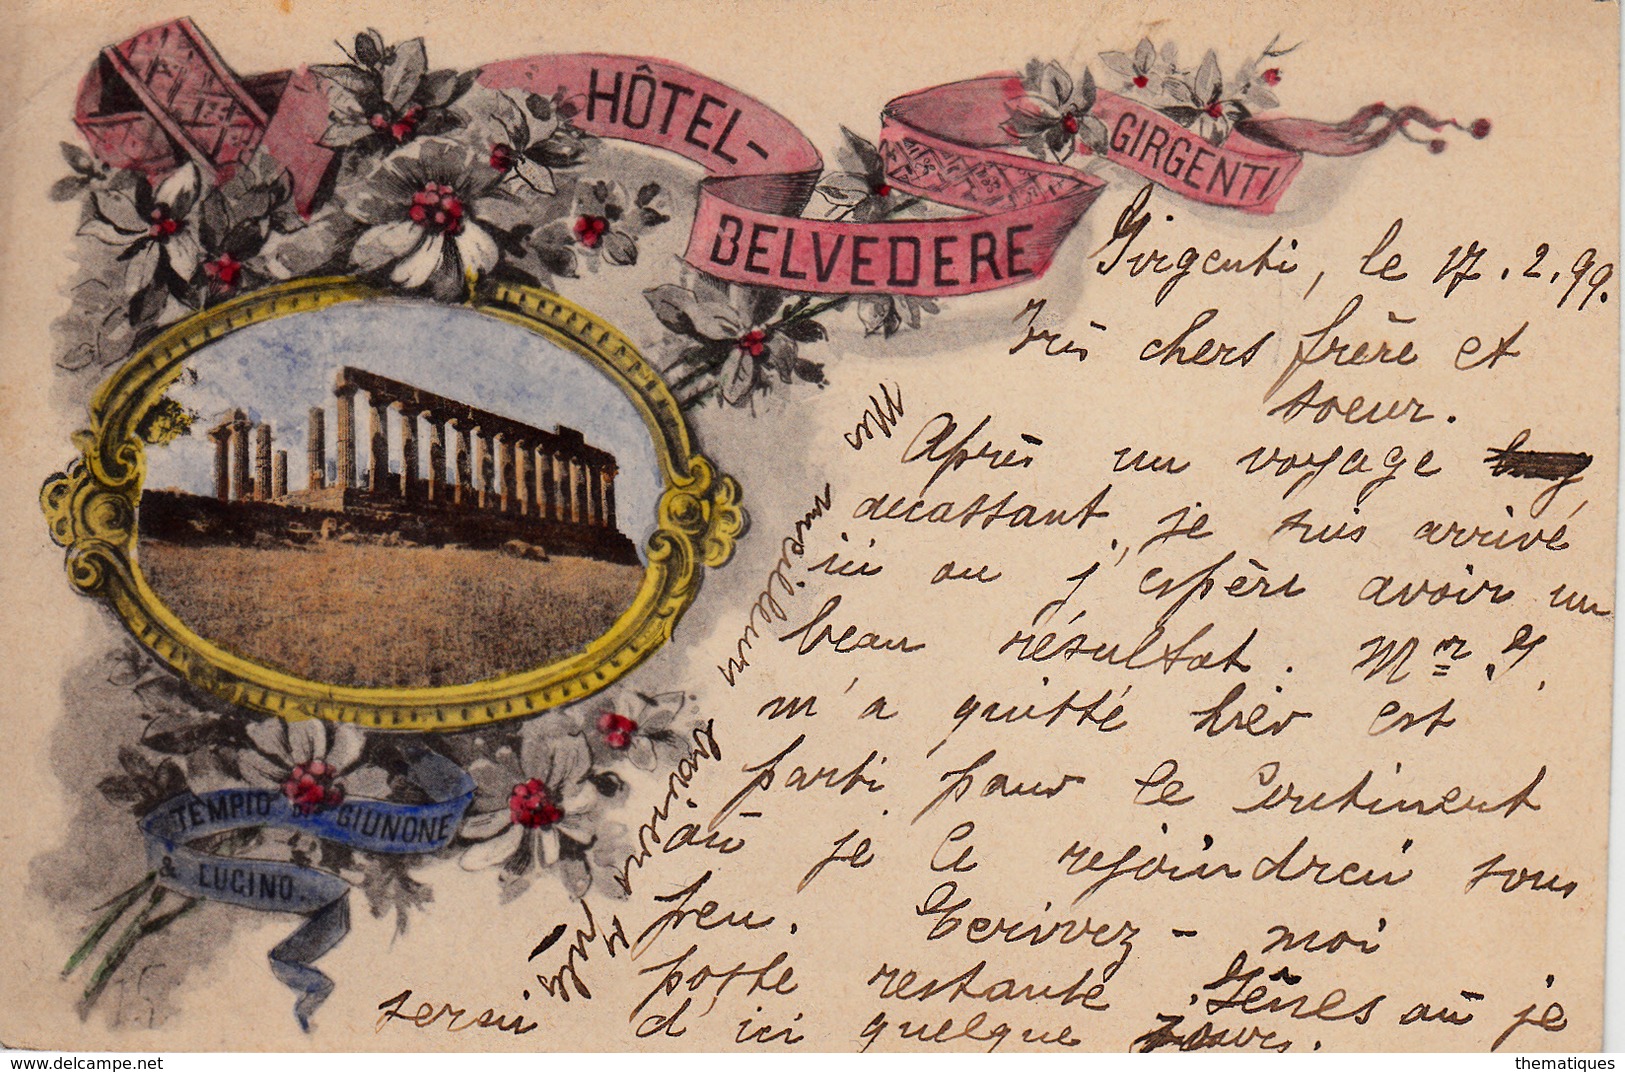 HÔTEL-
BELVEDERE
GIRGENTI
TEMPIO DI GIUNONE
& LUCINO.
Girgenti, le 17.2.99.
Très chers frère et
soeur.
Après un voyage
accassant, je suis arrivé
ici ou j'espère avoir un
beau résultat. Mr. Y.
m'a quitté hier est
parti pour le Continent
où je le rejoindrai sous
peu. Ecrivez-moi
poste restante Gênes où je
serai d'ici quelque jours.
Mes
meilleurs
baisers
delcampe.net
thematiques